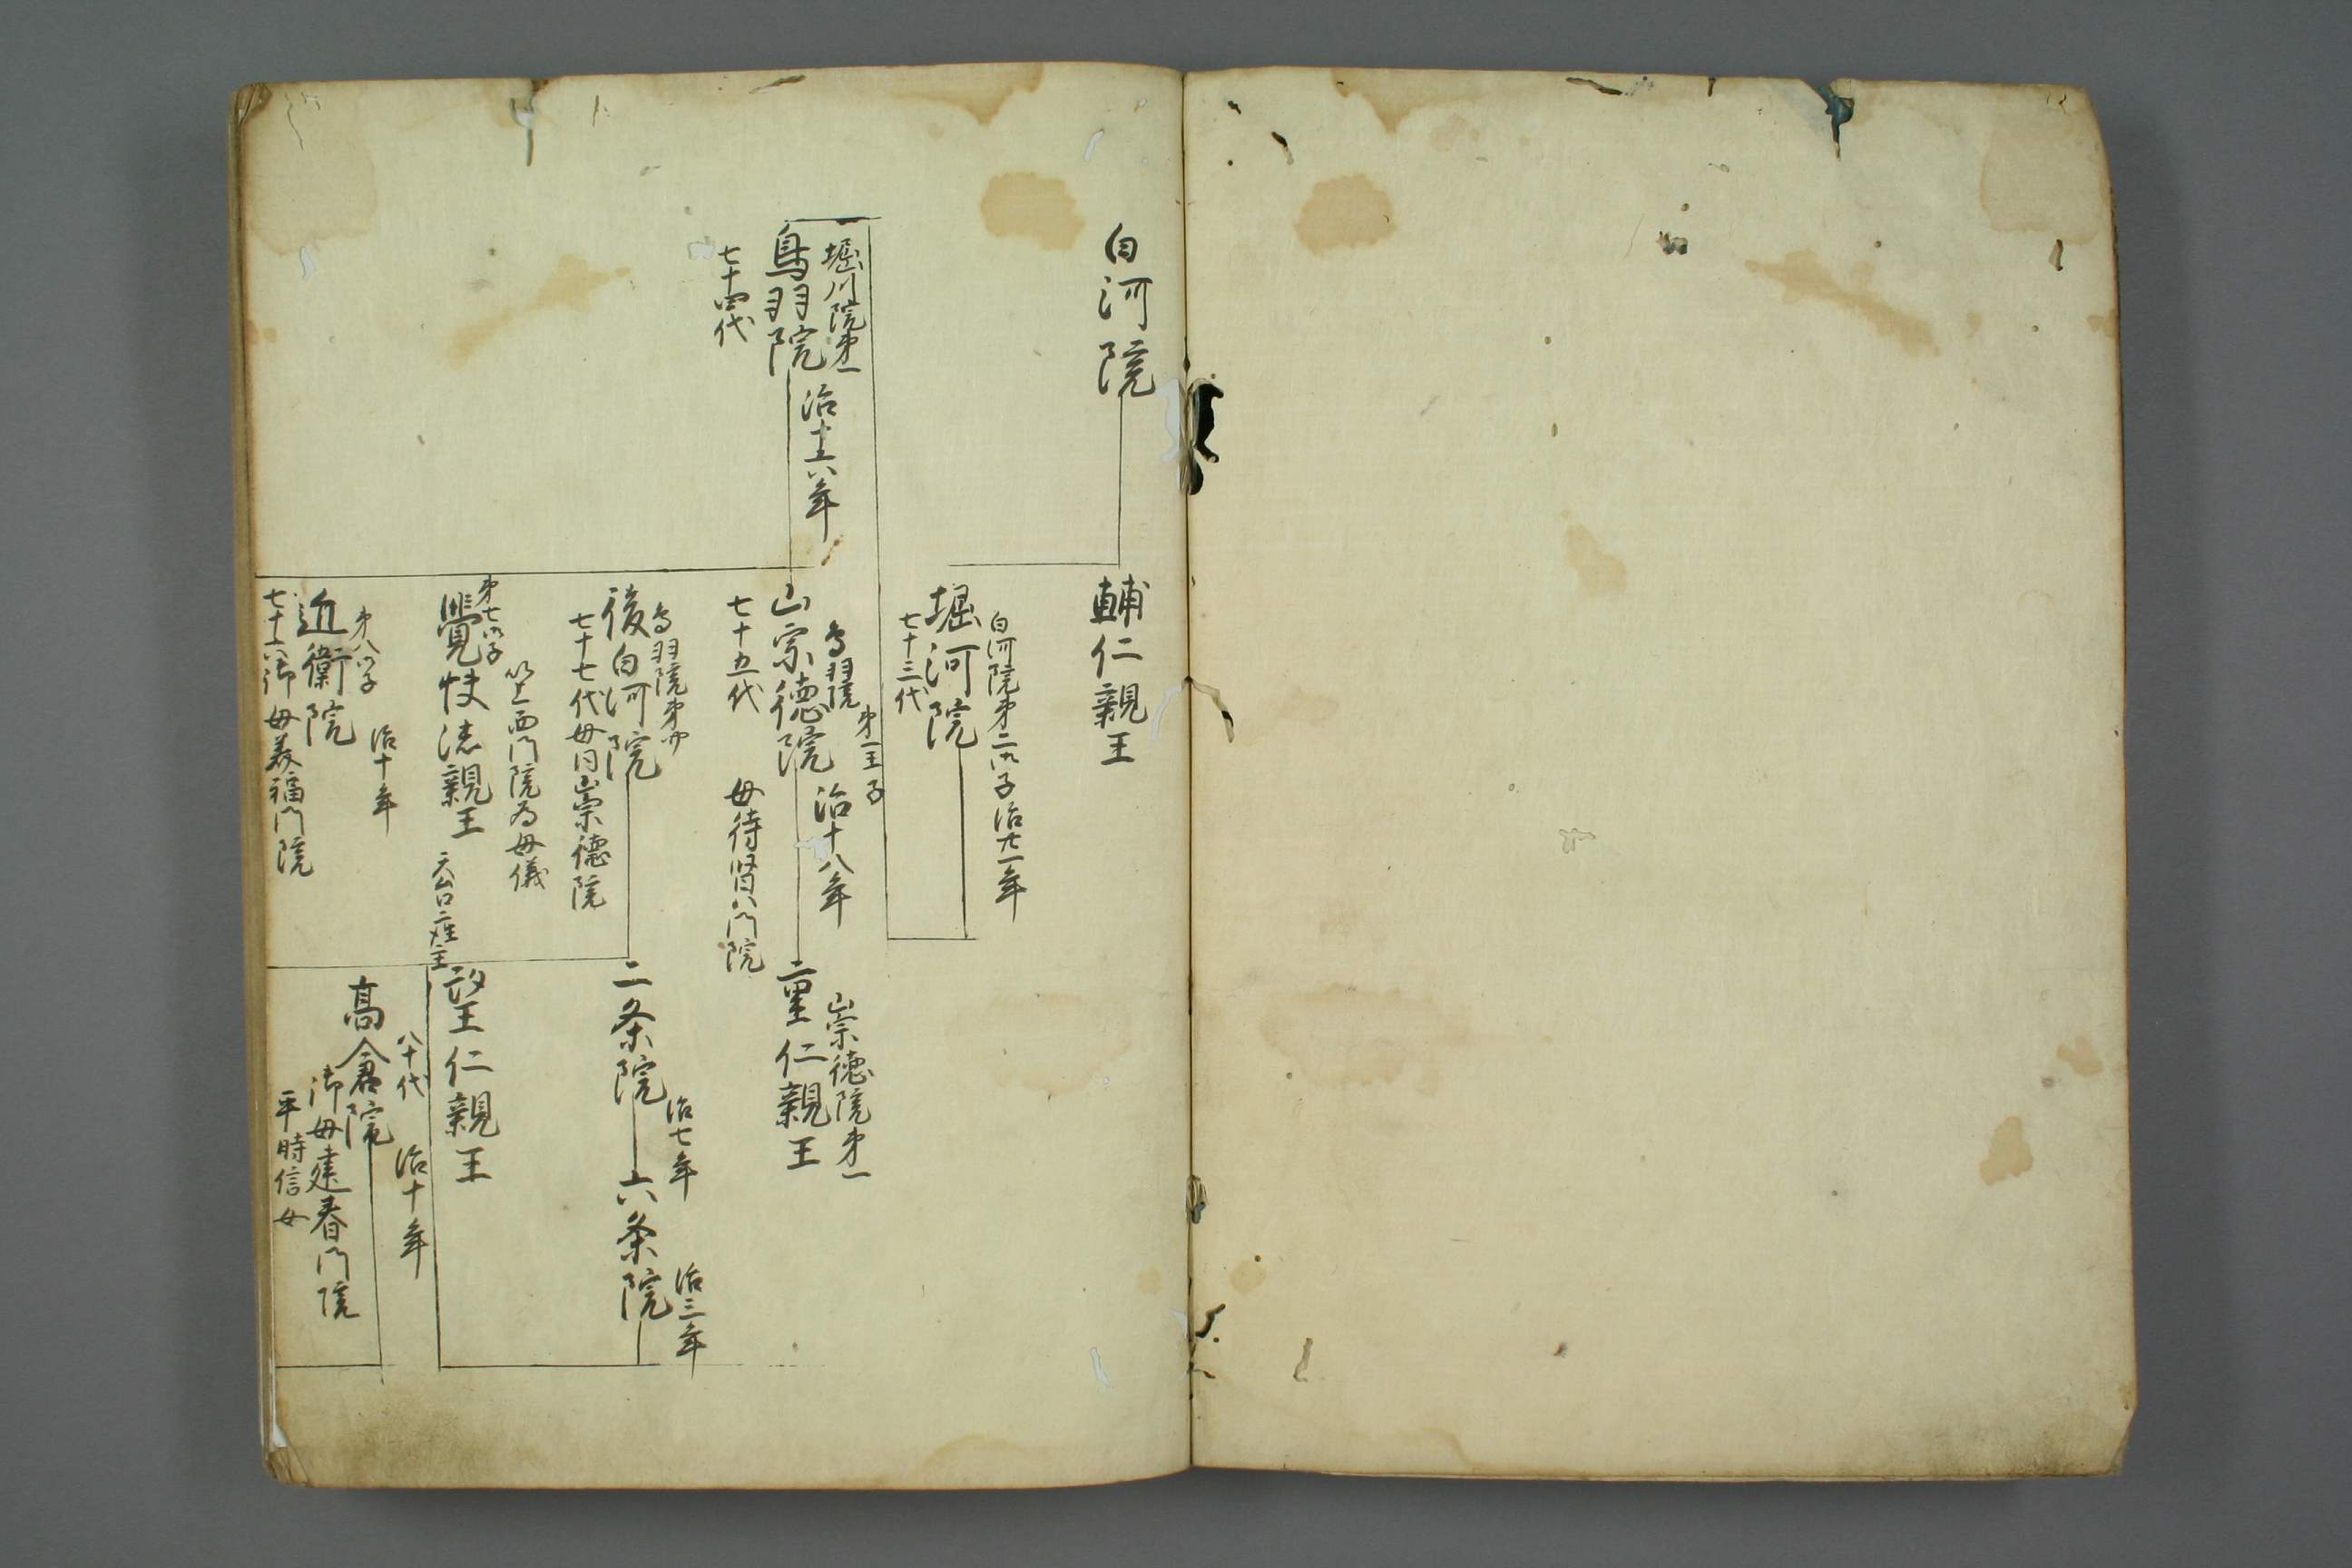 白河院
輔仁親王
白河院第二御子治廿一年
堀河院
七十三代
堀川院第一
鳥羽院
治十六年
七十四代
鳥羽院
第一王子
崇徳院
治十八年
七十五代
母待賢門院
崇徳院第一
重仁親王
鳥羽院第四
後白河院
七十七代母同崇徳院
二条院
治七年
六条院
治三年
以上西門院為母儀
第七御子
覺快法親王
天台座主
望王仁親王
第八御子
治十年
近衛院
七十六代
母美福門院
八十代
治十年
高倉院
御母建春門院
平時信女